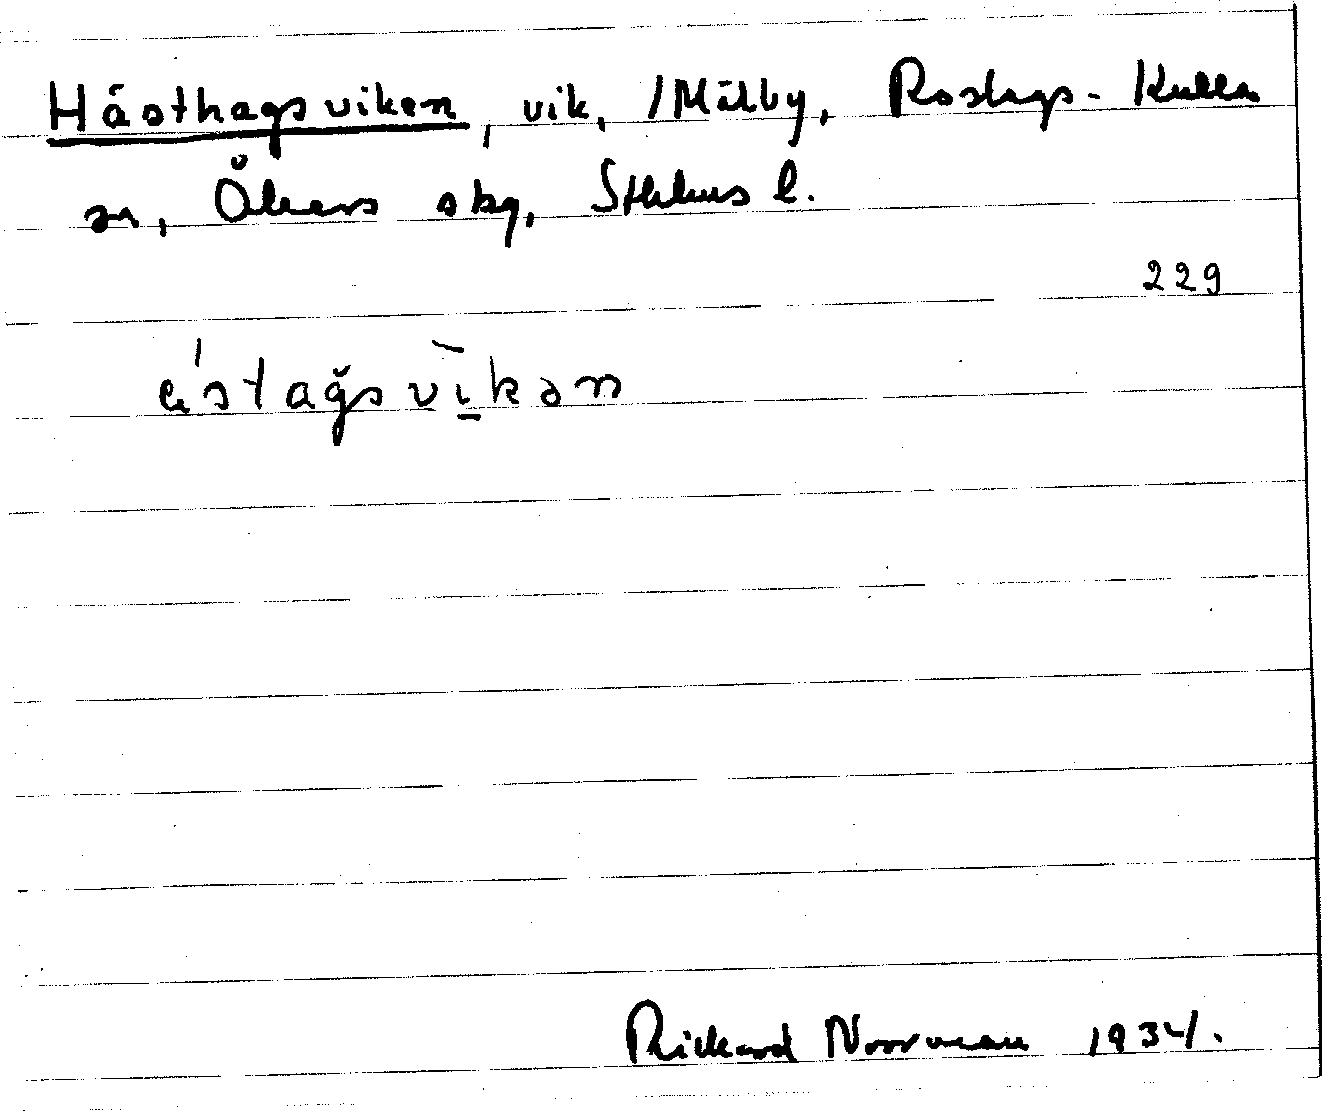 Hästhagsviken, vik, /Mälby, Roslags-Kulla
sn, Åkers skg, Sthlms l.
229
Rickard Norrman 1934.